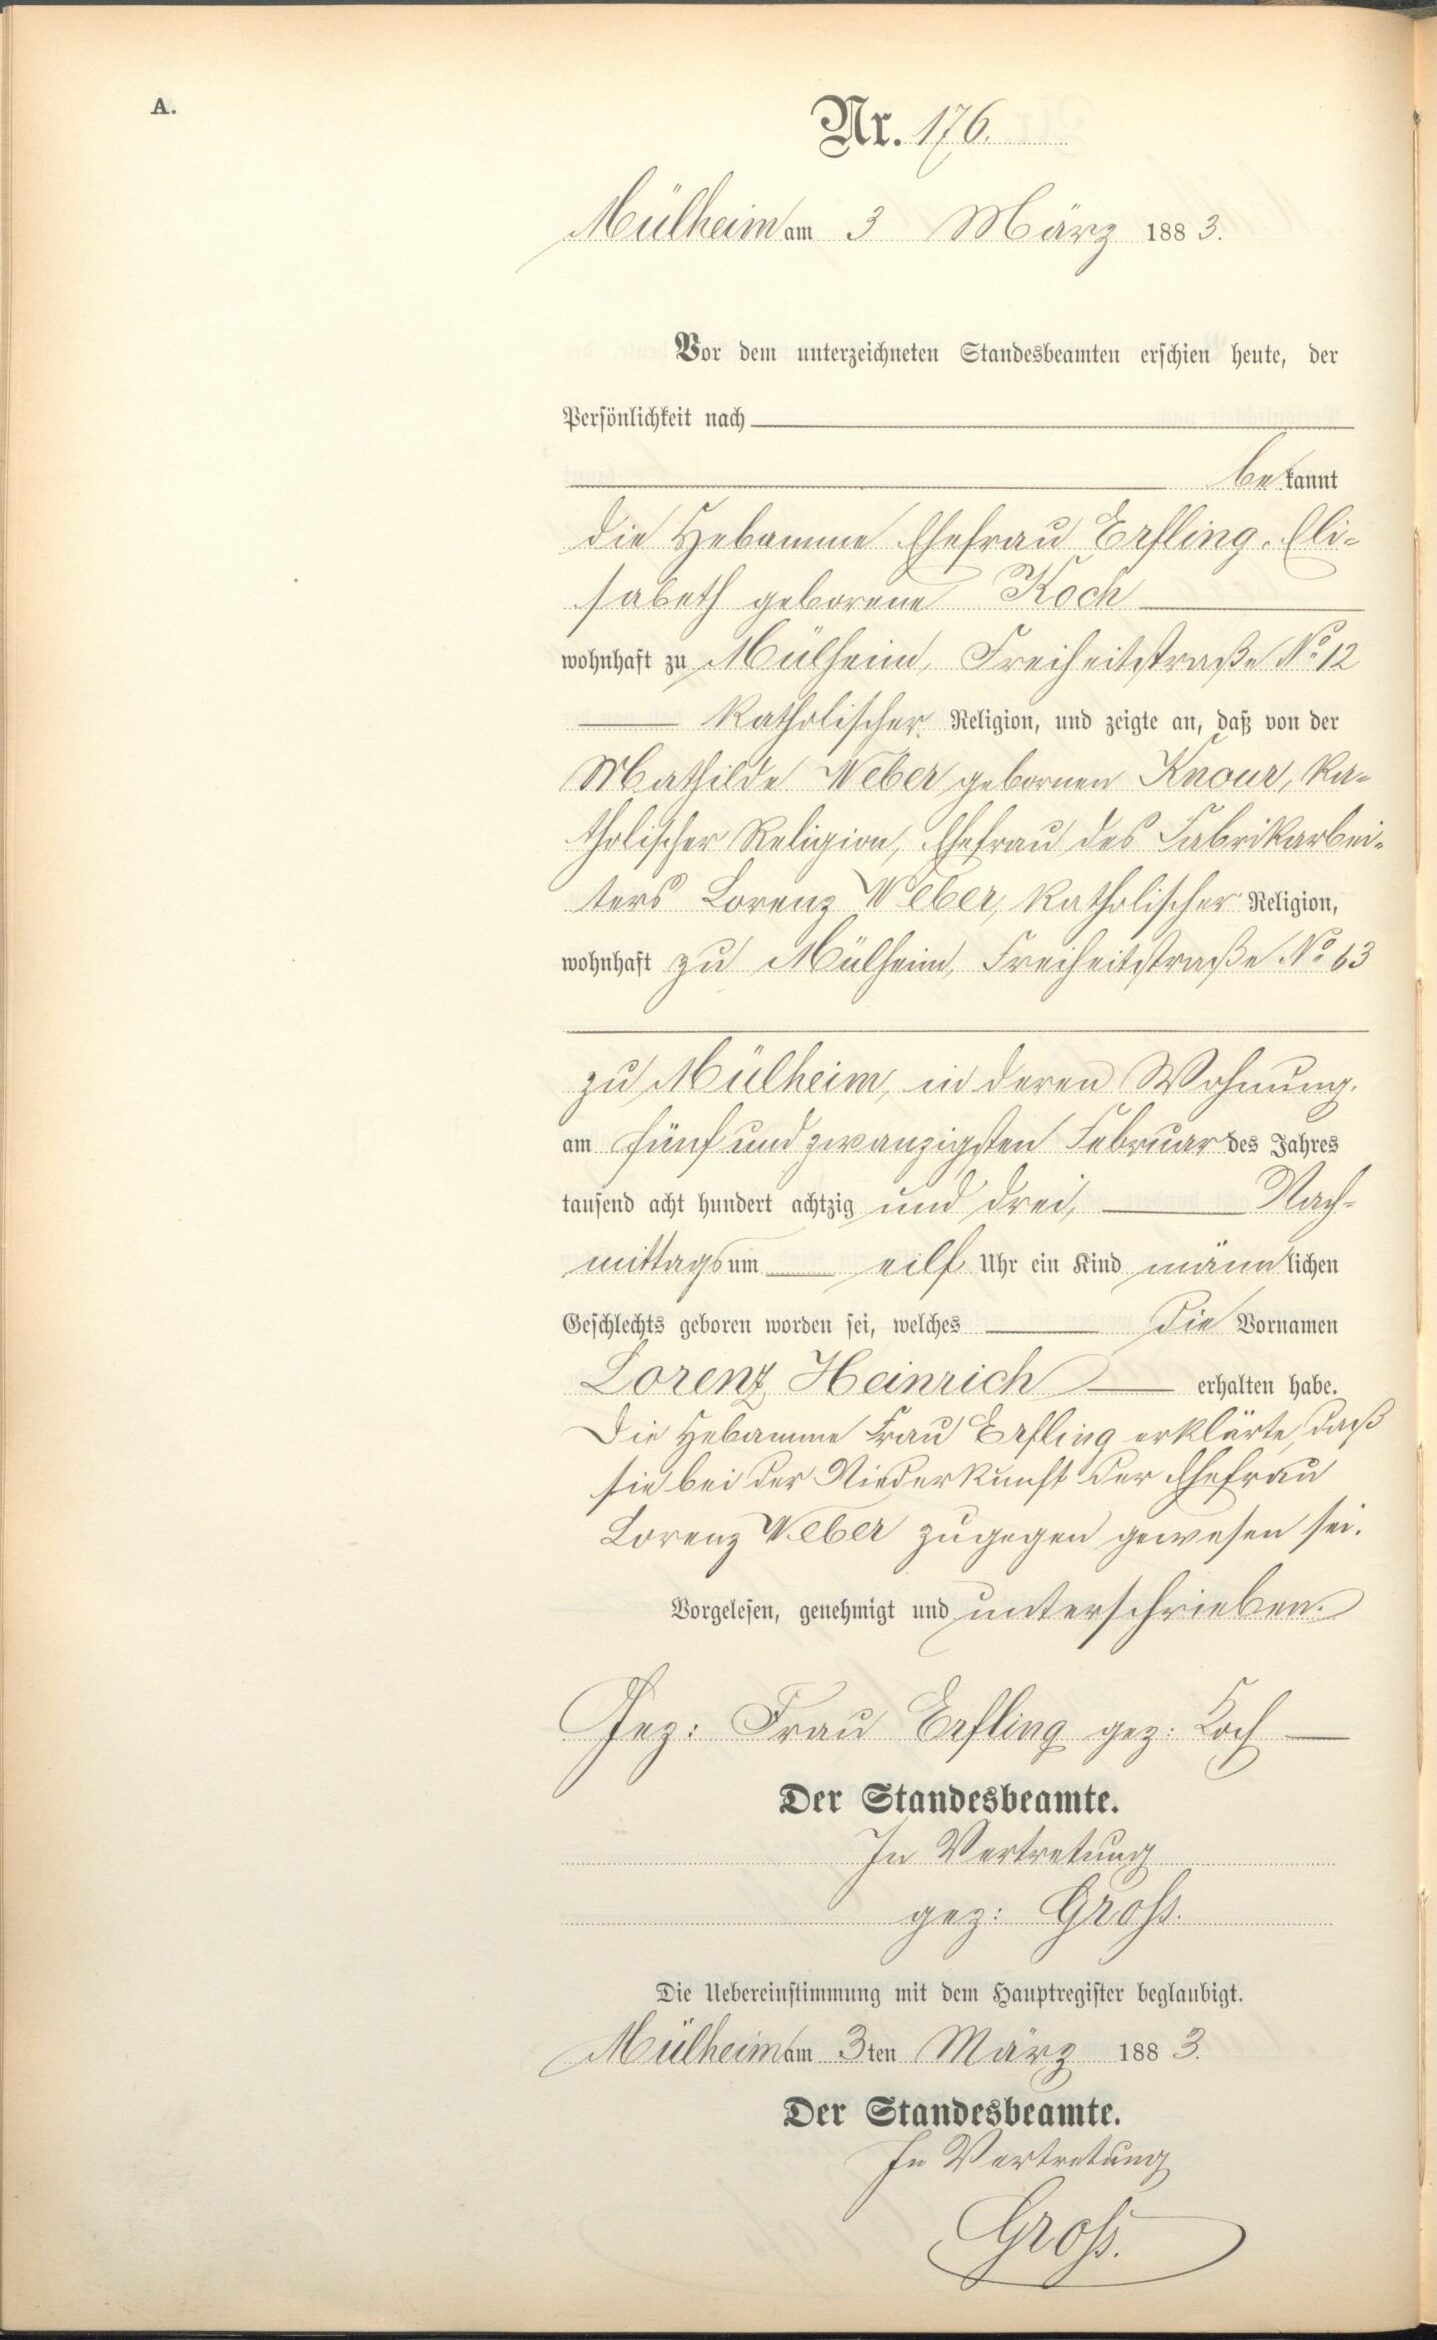 A.
Nr. 176.
Mülheim am 3 März 1883.
Vor dem unterzeichneten Standesbeamten erschien heute, der
Persönlichkeit nach
bekannt
die Hebamme Ehefrau Erfling, Eli-
sabeth geborene Koch
wohnhaft zu Mülheim, Freiheitstraße No 12
katholischer Religion, und zeigte an, daß von der
Mathilde Weber gebornen Knour, ka-
tholischer Religion, Ehefrau des Fabrikarbei-
ters Lorenz Weber, katholischer Religion,
wohnhaft zu Mülheim, Freiheitstraße No 63
zu Mülheim, in deren Wohnung,
am fünf und zwanzigsten Februar des Jahres
tausend acht hundert achtzig und drei, Nach-
mittags um eilf Uhr ein Kind männlichen
Geschlechts geboren worden sei, welches die Vornamen
Lorenz Heinrich erhalten habe.
Die Hebamme Frau Erfling erklärte, daß
sie bei der Niederkunft der Ehefrau
Lorenz Weber zugegen gewesen sei.
Vorgelesen, genehmigt und unterschrieben.
Gez: Frau Erfling gez: Koch
Der Standesbeamte.
In Vertretung
gez: Gross.
Die Uebereinstimmung mit dem Hauptregister beglaubigt.
Mülheim am 3ten März 1883.
Der Standesbeamte.
In Vertretung
Gross.